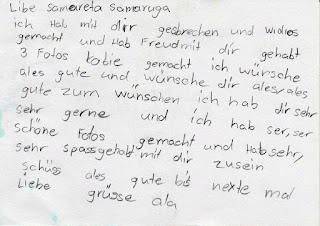 Libe Samareta Samaruga
ich Hab mit dir gesbrechen und Widios
gemacht und Hab Freud mit dir gehabt
3 Fotos kobie gemacht ich wünsche
ales gute und wünsche dir ales, ales
gute zum wünschen ich hab dir sehr
sehr gerne und ich hab ser, ser
schöne Fotos gemacht und Hab sehr,
sehr spassgehabt mit dir zusein
schüss ales gute bis nexte mal
Liebe grüsse ala